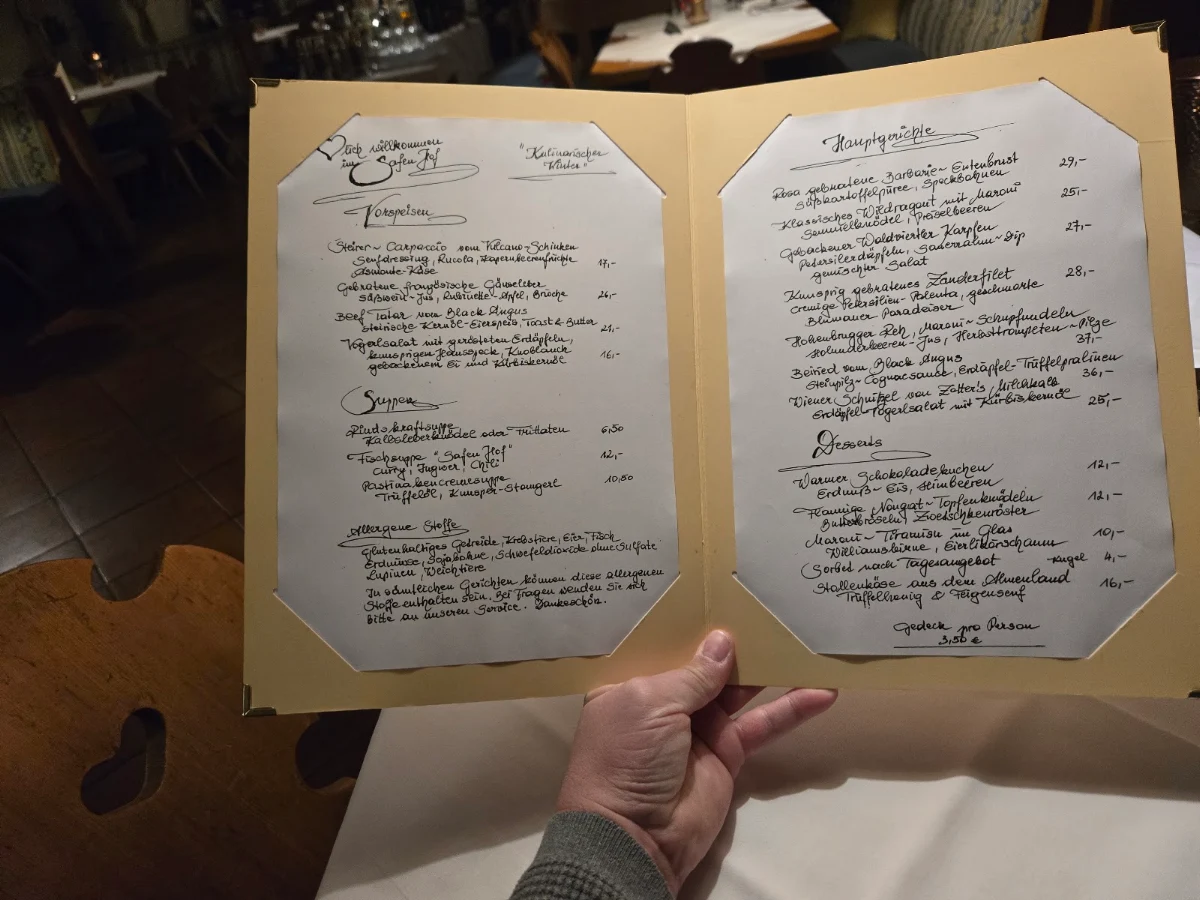 ♡lich willkommen
im Safen Hof
"Kulinarischer
Winter"
Vorspeisen
Steirer~ Carpaccio vom Vulcano-Schinken
Senfdressing, Rucola, Kapernbeerenfrüchte
Asmonte-Käse 17,-
Gebratene französische Gänseleber
Süßwein-Jus, Rubinette-Apfel, Brioche 26,-
Beef Tatar vom Black Angus
steirische Kernöl-Eierspeis, Toast & Butter 21,-
Vogerlsalat mit gerösteten Erdäpfeln,
knusprigen Hausspeck, Knoblauch
gebackenem Ei und Kürbiskernöl 16,-
Suppen
Rindskraftsuppe
Kalbsleberknödel oder Frittaten 6,50
Fischsuppe "Safen Hof"
Curry, Ingwer, Chili 12,-
Pastinakencremesuppe
Trüffelöl, Knusper-Stangerl 10,50
Allergene Stoffe
Glutenhaltiges Getreide, Krebstiere, Eier, Fisch
Erdnüsse, Sojabohne, Schwefeldioxide ohne Sulfate
Lupinen, Weichtiere
In sämtlichen Gerichten können diese allergenen
Stoffe enthalten sein. Bei Fragen wenden Sie sich
bitte an unseren Service. Dankeschön.
Hauptgerichte
Rosa gebratene Barbarie~ Entenbrust 29,-
Süßkartoffelpüree, Speckbohnen
Klassisches Wildragout mit Maroni 25,-
Semmelknödel, Preiselbeeren
Gebackener Waldviertler Karpfen 27,-
Petersilerdäpfeln, Sauerrahm~Dip
gemischter Salat
Knusprig gebratenes Zanderfilet 28,-
cremige Petersilien-Polenta, geschmorte
Blumauer Paradeiser
Hohenbrugger Reh, Maroni~ Schupfnudeln
Holunderbeeren-Jus, Herbsttrompeten~Pilze 37,-
Beiried vom Black Angus
Steinpilz~Cognacsauce, Erdäpfel-Trüffelpralinen 36,-
Wiener Schnitzel von Zotter's Milchkalb
Erdäpfel-Vogerlsalat mit Kürbiskernöl 25,-
Desserts
Warmer Schokoladekuchen 12,-
Erdnuß~ Eis, Himbeeren
Flaumige Nougat~Topfenknödeln 12,-
Butterbröseln, Zwetschkenröster
Maroni~ Tiramisu im Glas 10,-
Williamsbirne, Eierlikörschaum
Sorbet nach Tagesangebot Kugel 4,-
Stollenkäse aus dem Almenland 16,-
Trüffelhonig & Feigensenf
Gedeck pro Person
3,50 €